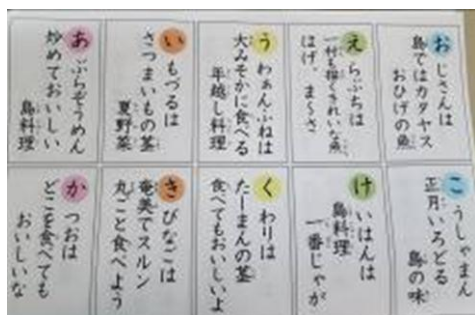 あぶらぞうめん
炒めておいしい
島料理
いもづるは
さつまいもの茎
夏野菜
うわぁんふねは
大みそかに食べる
年越し料理
えらぶちは
一村も描くきれいな魚
はげ、まーさ
おじさんは
島ではカタヤス
おひげの魚
かつおは
どこを食べても
おいしいな
きびなごは
奄美でスルン
丸ごと食べよう
くわりは
たーまんの茎
食べてもおいしいよ
けいはんは
島料理
一番じゃが
こうしゃまん
正月いろどる
島の味